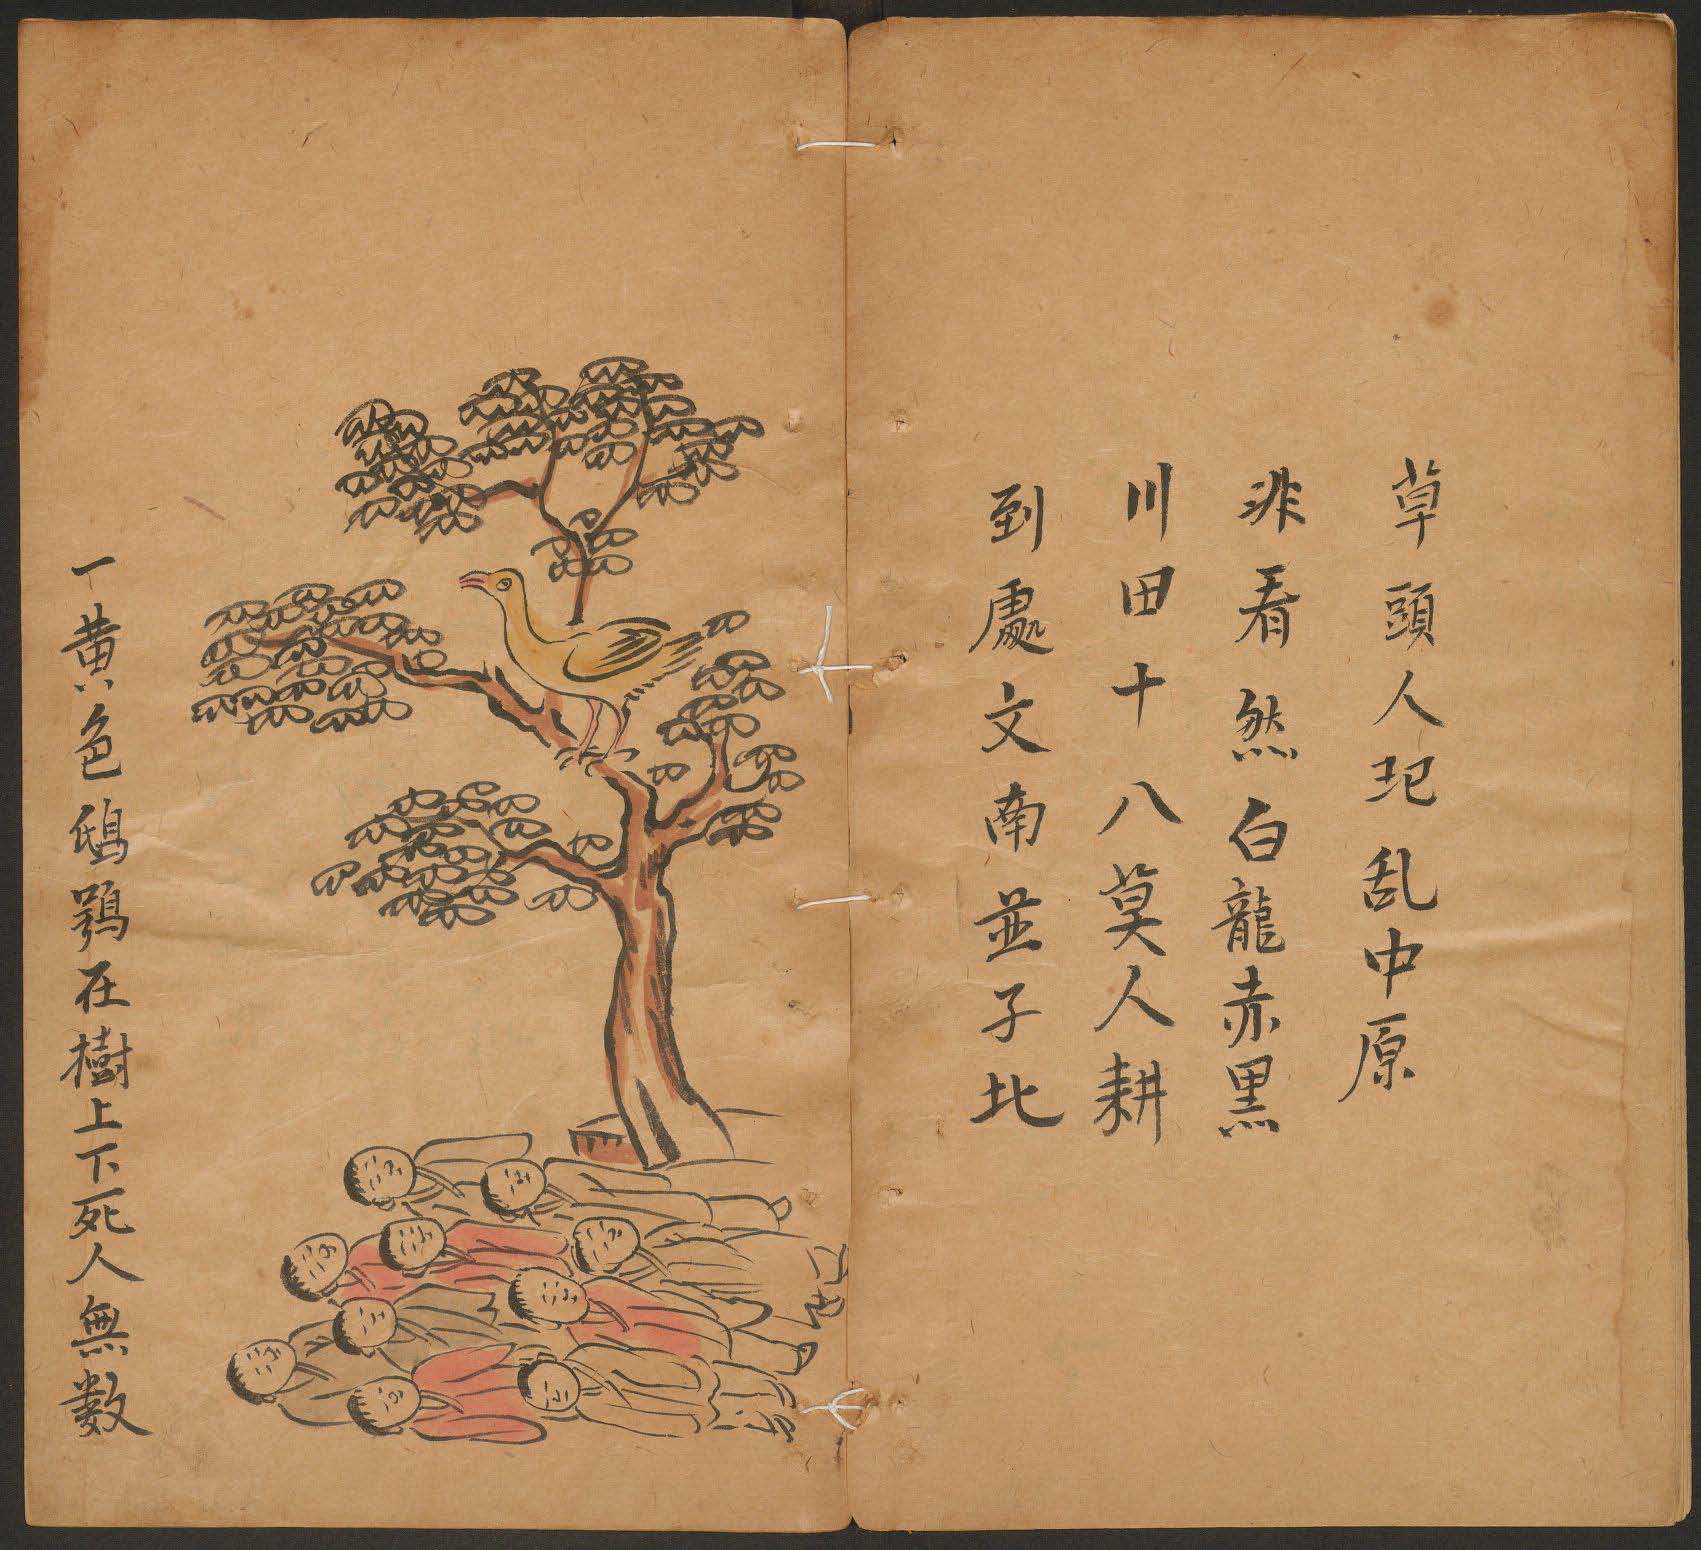 草頭人圯乱中原
非看然白龍赤黑
川田十八莫人耕
到處文南並子北
一黄色鴟鶚在樹上下死人無數